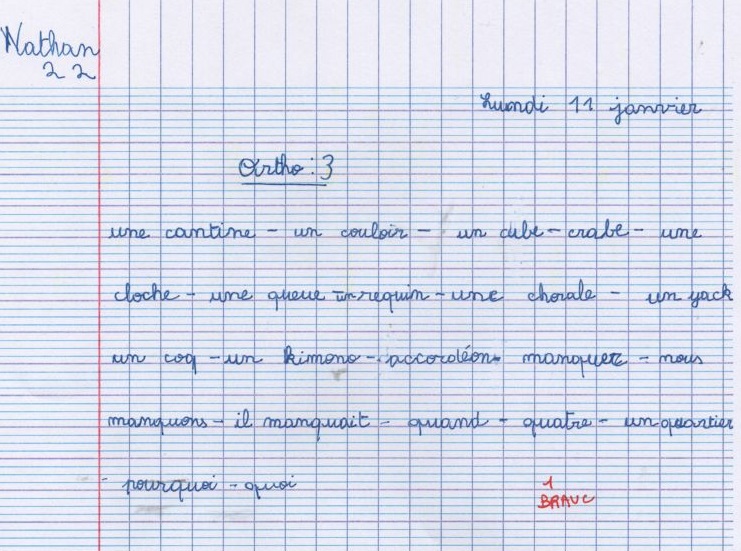 Nathan
22
Lundi 11 janvier
Ortho : 3
une cantine - un couloir - un cube - crabe - une
cloche - une queue un requin - une chorale - un yack
un coq - un kimono - accordéon - manquer - nous
manquons - il manquait - quand - quatre - un quartier
- pourquoi - quoi
1
BRAVO